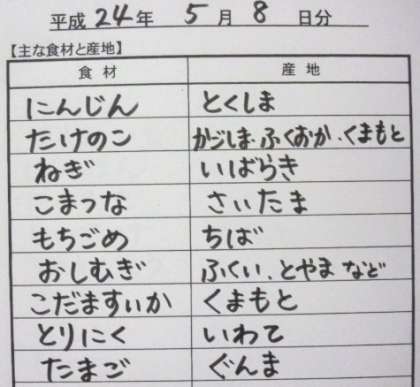 平成 24 年 5 月 8 日分
【主な食材と産地】
食材 産地
にんじん とくしま
たけのこ かごしま.ふくおか.くまもと
ねぎ いばらき
こまつな さいたま
もちごめ ちば
おしむぎ ふくい、とやま など
こだますいか くまもと
とりにく いわて
たまご ぐんま